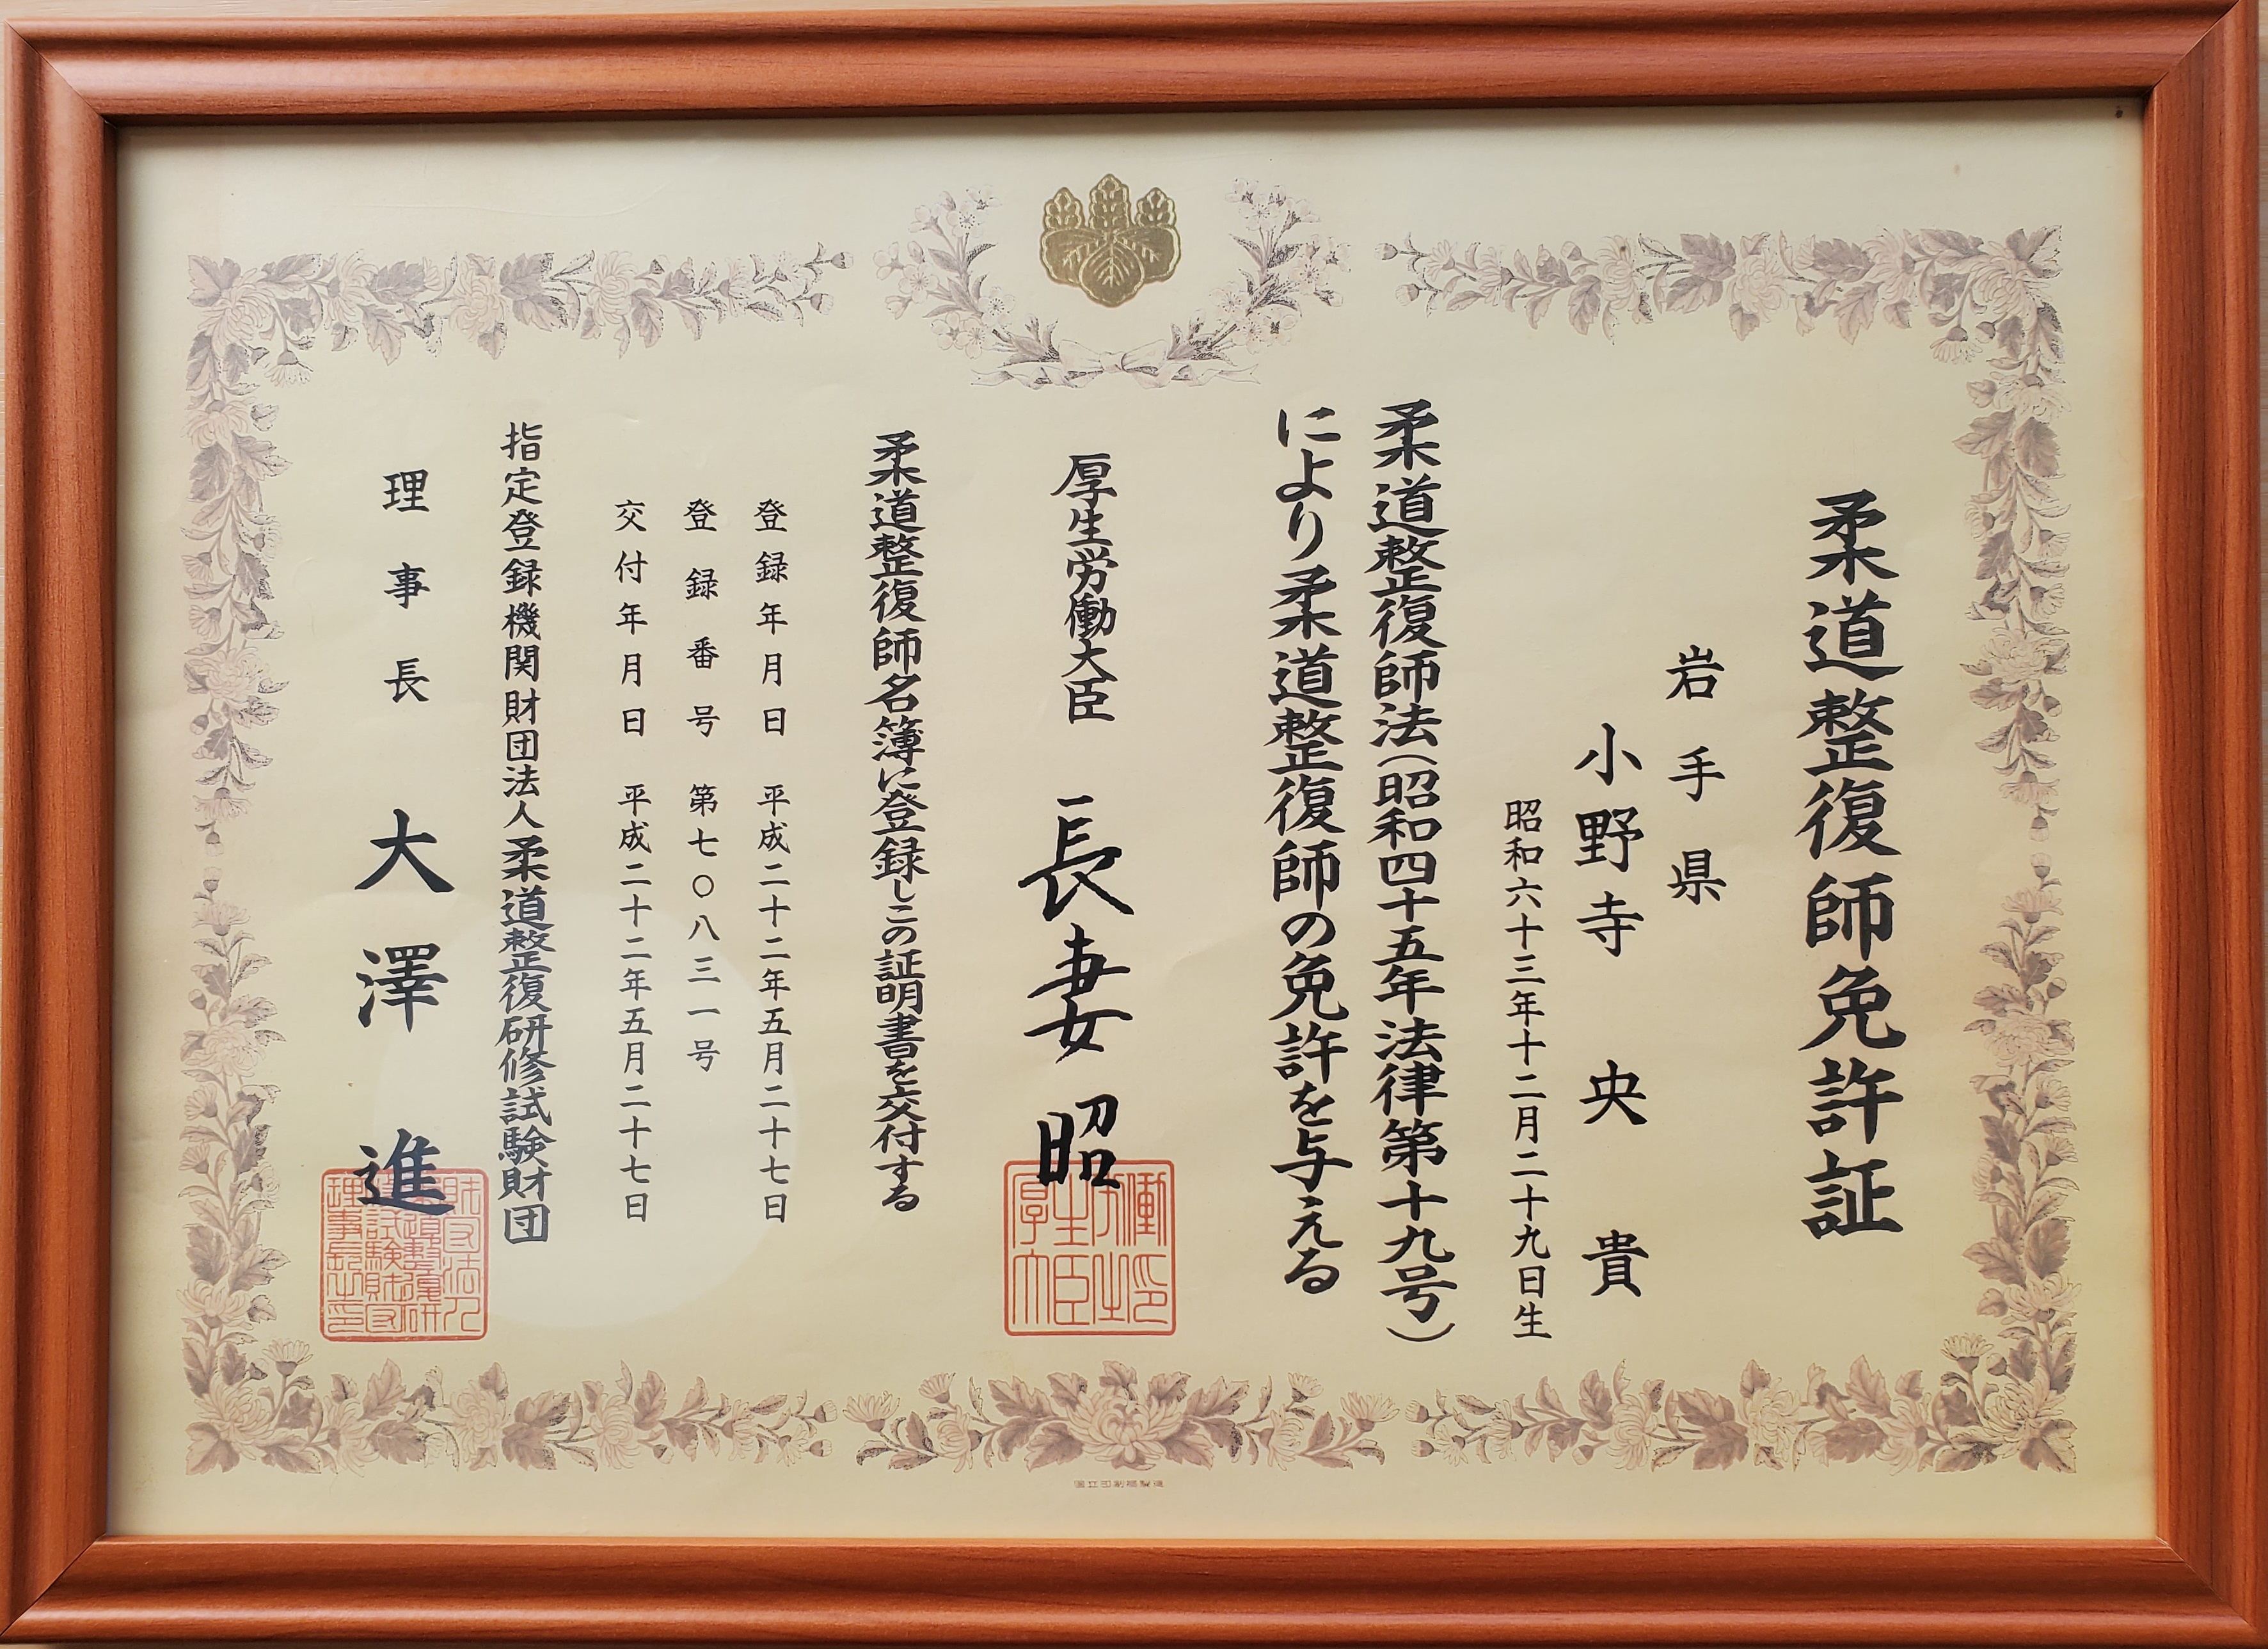 柔道整復師免許証
岩手県
小野寺央貴
昭和六十三年十二月二十九日生
柔道整復師法(昭和四十五年法律第十九号)
により柔道整復師の免許を与える
厚生労働大臣 長妻昭
柔道整復師名簿に登録しこの証明書を交付する
登録年月日 平成二十二年五月二十七日
登録番号 第七〇八三一号
交付年月日 平成二十二年五月二十七日
指定登録機関財団法人柔道整復研修試験財団
理事長 大澤進
国立印刷局製造